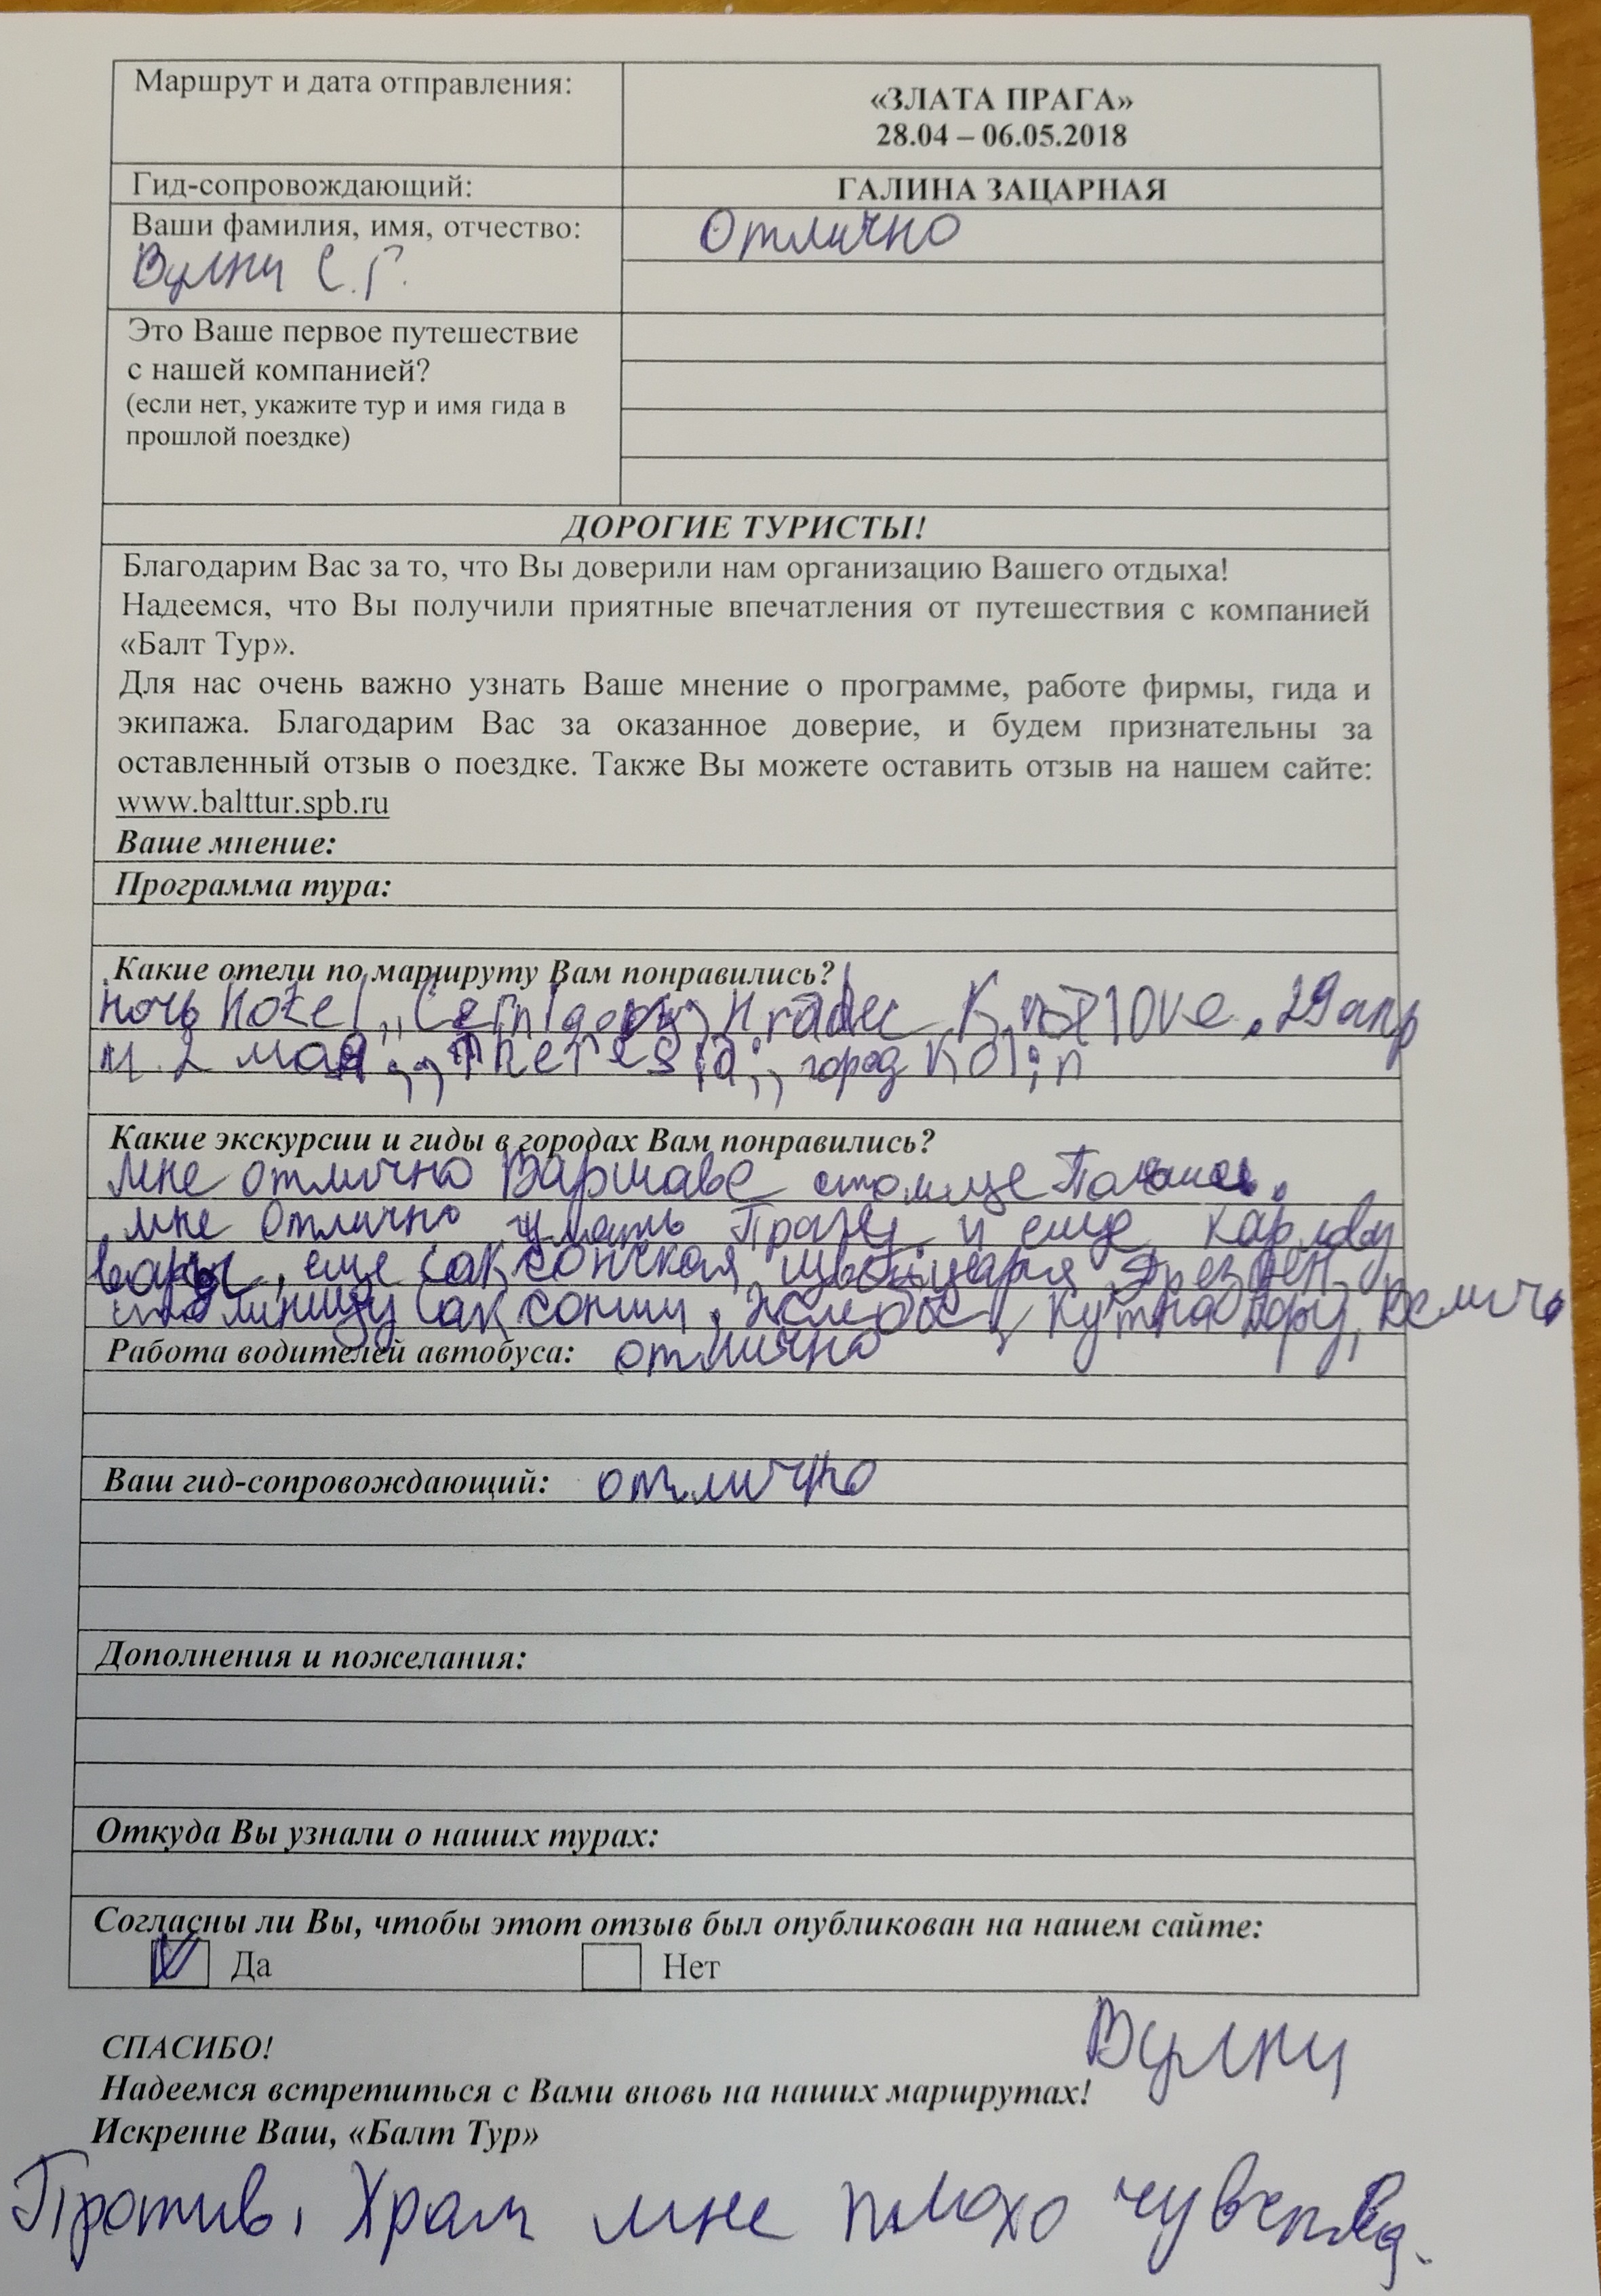 Маршрут и дата отправления:
«ЗЛАТА ПРАГА»
28.04 – 06.05.2018
Гид-сопровождающий:
ГАЛИНА ЗАЦАРНАЯ
Ваши фамилия, имя, отчество:
Отлично
С.Г.
Это Ваше первое путешествие
с нашей компанией?
(если нет, укажите тур и имя гида в
прошлой поездке)
ДОРОГИЕ ТУРИСТЫ!
Благодарим Вас за то, что Вы доверили нам организацию Вашего отдыха!
Надеемся, что Вы получили приятные впечатления от путешествия с компанией
«Балт Тур».
Для нас очень важно узнать Ваше мнение о программе, работе фирмы, гида и
экипажа. Благодарим Вас за оказанное доверие, и будем признательны за
оставленный отзыв о поездке. Также Вы можете оставить отзыв на нашем сайте:
www.balttur.spb.ru
Ваше мнение:
Программа тура:
Какие отели по маршруту Вам понравились?
ночь Hotel Hradec 29 апр
и 2 мая „Theresia„ город Kolin
Какие экскурсии и гиды в городах Вам понравились?
мне отлично Варшаве столице
мне отлично Прагу и еще Карлову
вары, еще саксонская швейцария Дрезден
саксонии. Кутна Гору,
Работа водителей автобуса: отлично
Ваш гид-сопровождающий: отлично
Дополнения и пожелания:
Откуда Вы узнали о наших турах:
Согласны ли Вы, чтобы этот отзыв был опубликован на нашем сайте:
Да Нет
СПАСИБО!
Надеемся встретиться с Вами вновь на наших маршрутах!
Искренне Ваш, «Балт Тур»
Против. Храм мне плохо